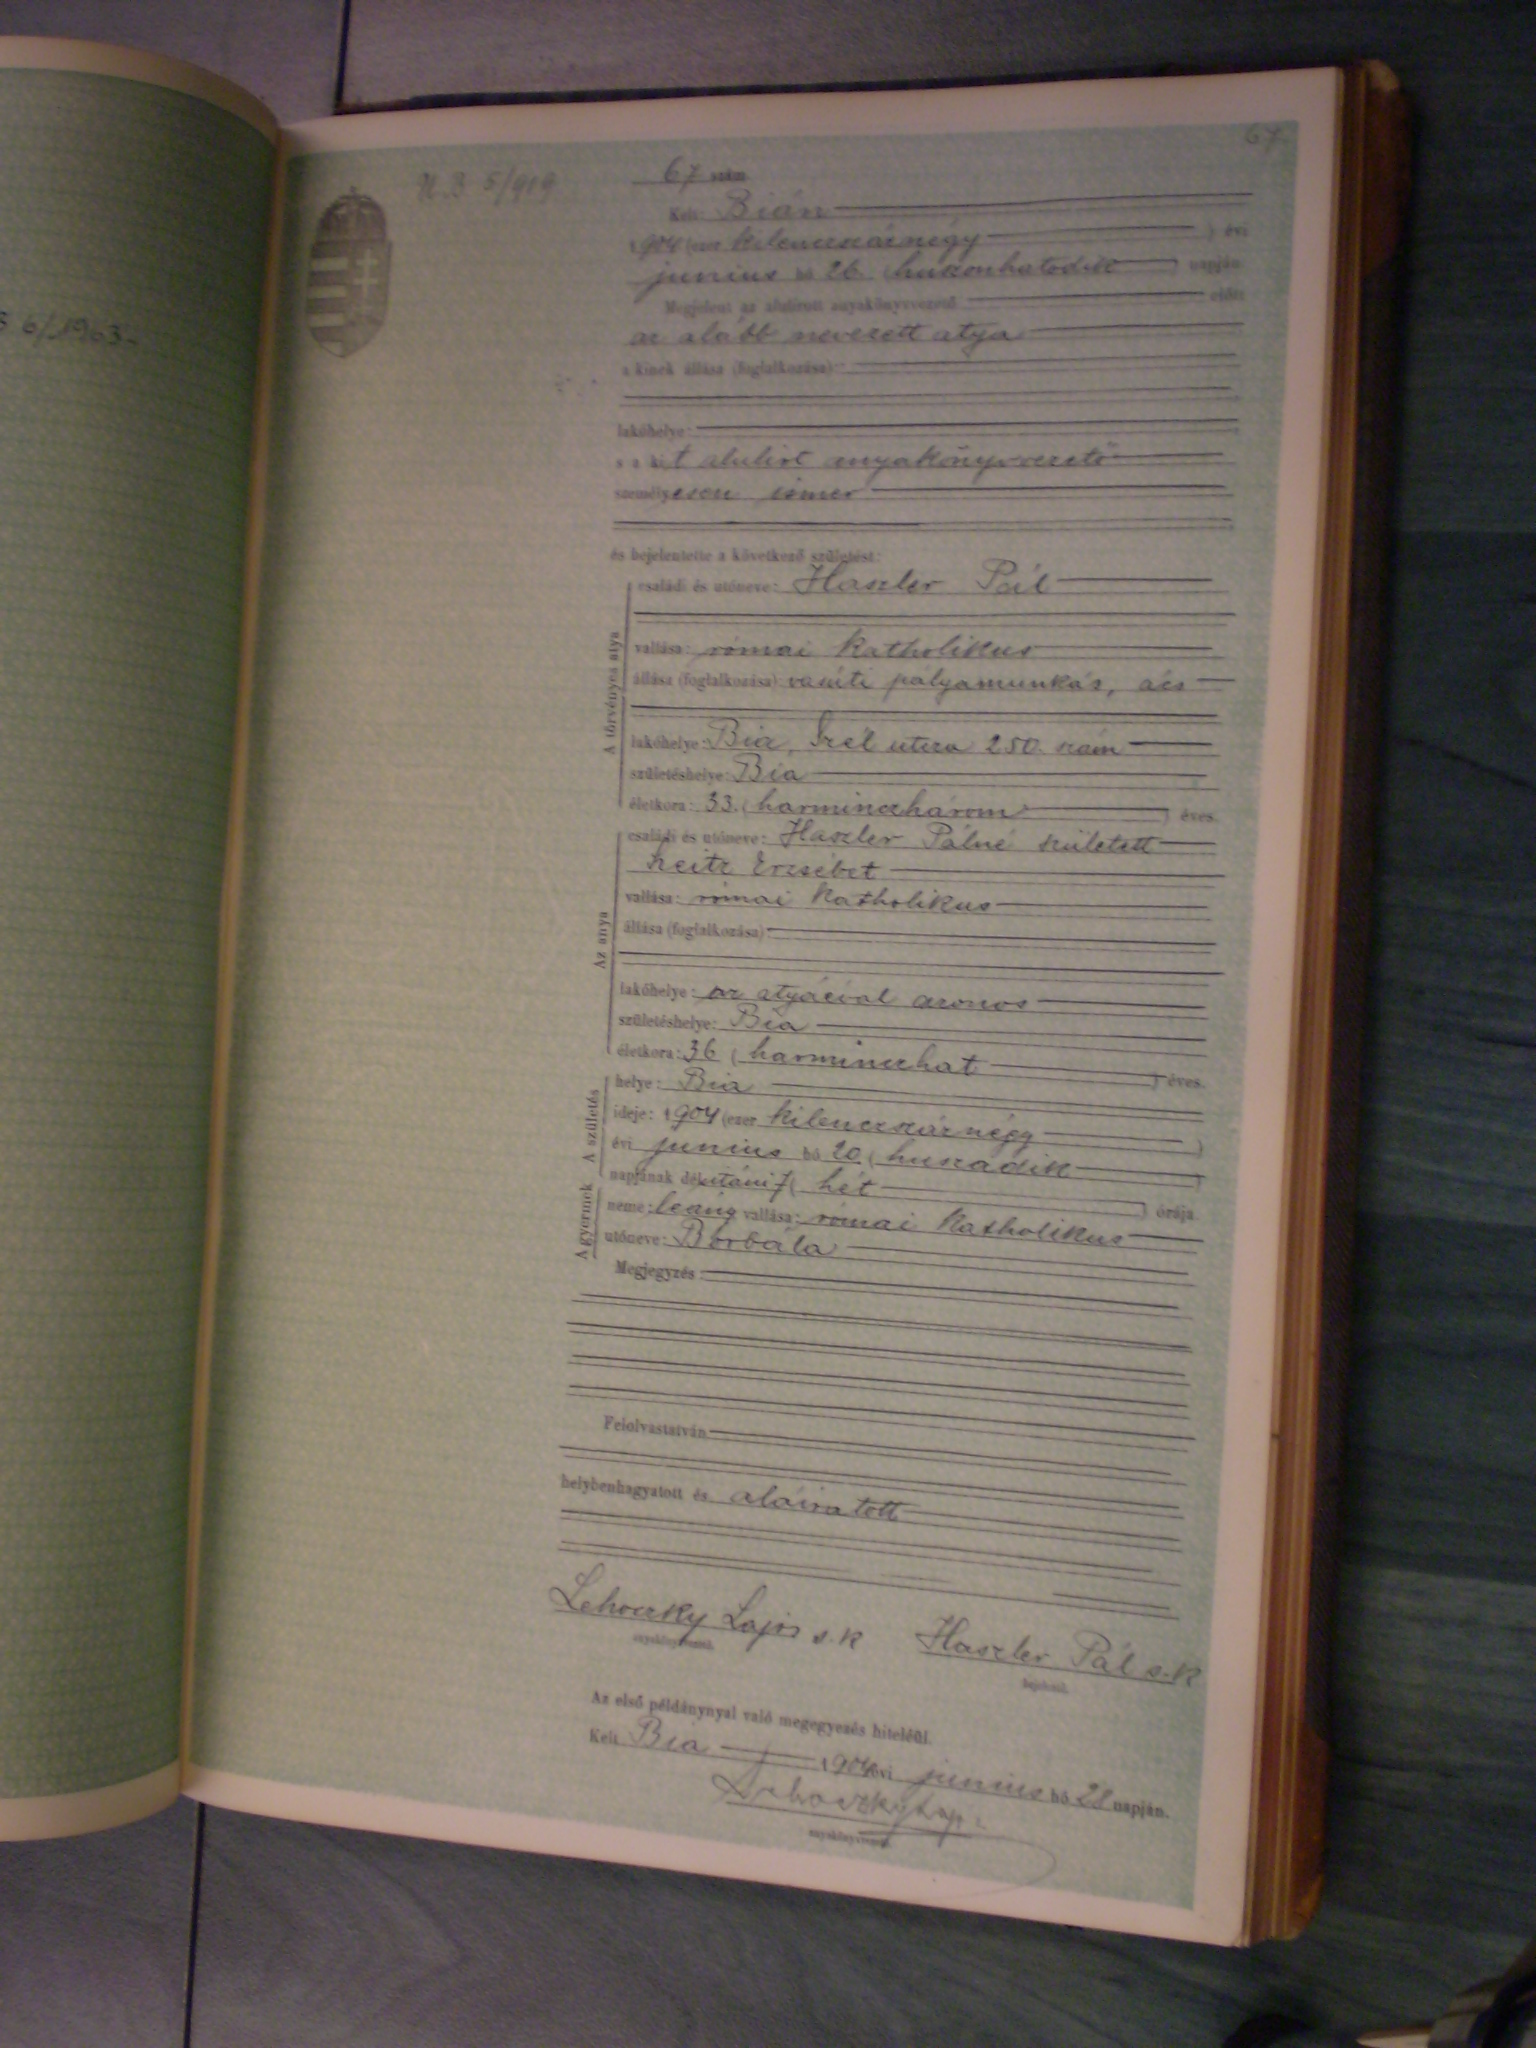 6/1963-
67
H.B 5/919
67 szám
Kelt: Bián
1904 (ezer kilenczszáznégy) évi
junius hó 26. (huszonhatodik) napján
Megjelent az alulirott anyakönyvvezető előtt
az alább nevezett atya
a kinek állása (foglalkozása):
lakóhelye:
s a kit alulirt anyakönyvvezető
személyesen ismer
és bejelentette a következő születést:
A törvényes atya
családi és utóneve: Haszler Pál
vallása: római katholikus
állása (foglalkozása): vasúti pályamunkás, ács
lakóhelye: Bia, Szél utcza 250. szám
születéshelye: Bia
életkora: 33. (harminczhárom) éves.
Az anya
családi és utóneve: Haszler Pálné született
Szeitz Erzsébet
vallása: római katholikus
állása (foglalkozása)
lakóhelye: az atyáéval azonos
születéshelye: Bia
életkora: 36 (harminczhat) éves.
A születés
helye: Bia
ideje: 1904 (ezer kilenczszáznégy)
évi junius hó 20 (huszadik)
napjának délutáni 7 (hét) órája
A gyermek
neme: leány vallása: római katholikus
utóneve: Borbála
Megjegyzés:
Felolvastatván
helybenhagyatott és aláiratott
Lehoczky Lajos s. k Haszler Pál s. k
anyakönyvvezető. bejelentő.
Az első példánynyal való megegyezés hiteléül.
Kelt Bia 1904 évi junius hó 28 napján.
Lehoczky Lajos
anyakönyvvezető.